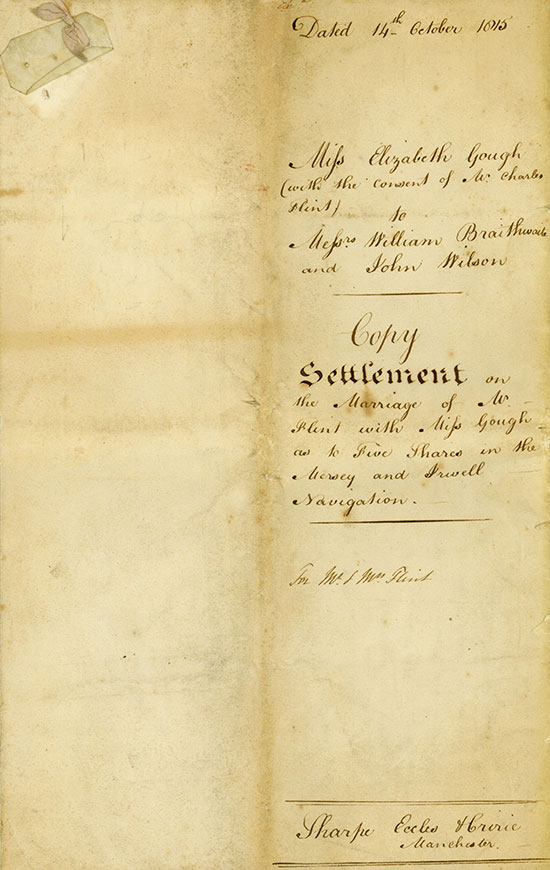 Dated 14th October 1815
Miſs Elizabeth Gough
(with the consent of Mr. Charles
Flint)
to
Meſsrs William Braithwaite
and John Wilson
Copy
Settlement on
the Marriage of Mr
Flint with Miſs Gough
as to Five Shares in the
Mersey and Irwell
Navigation.
For Mr. & Mrs Flint
Sharpe Eccles &
Manchester.